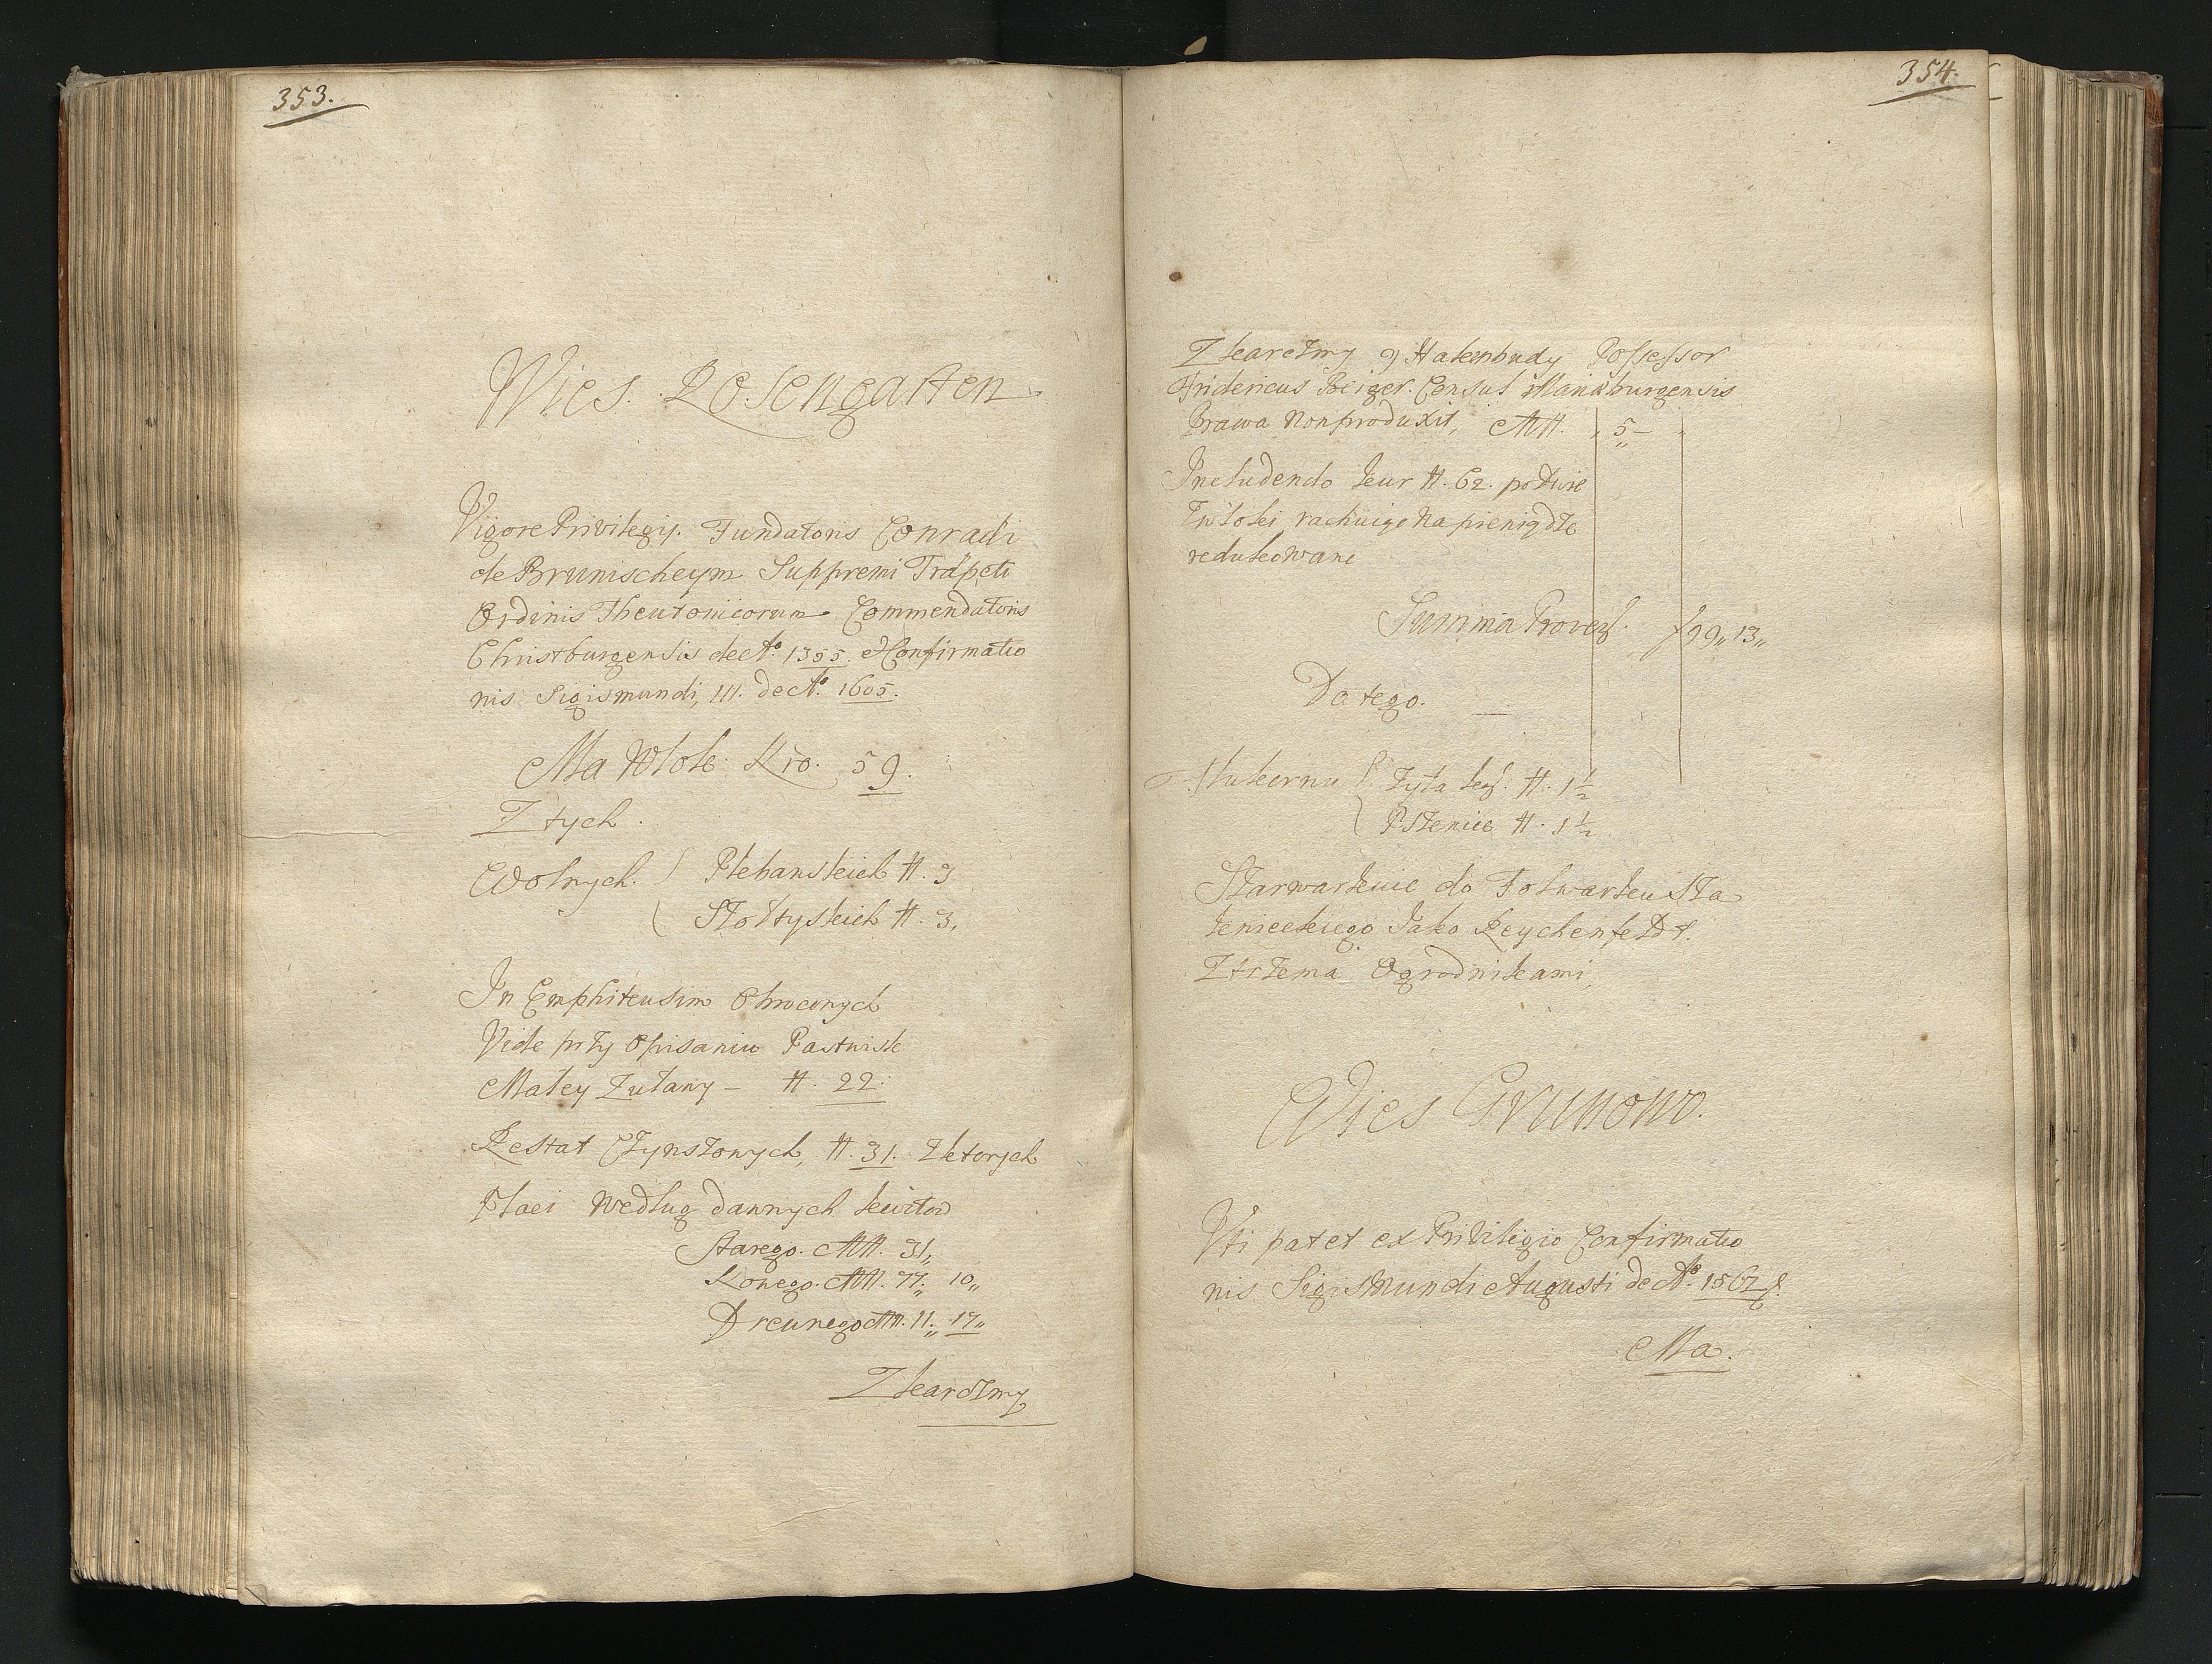 353.
Wies Rosengarten
Vigore Privilegij Fundatoris Conradi
de Brunischeym Suppremi Trapeti
Ordinis Theutonicorum Commendatoris
Christburgensis de Aº 1355. et Confirmatio
nis Sigismundi, III. de Aº. 1605.
Ma Wlok Nro. 59.
Z tych.
Wolnych. Plebanskich N. 3
Szołtyskich N. 3.
In Emphiteusim obroconych
Vide przy opisaniu Pastwisk
Małey Zuławy – N. 22.
Restat Czynszowych, N. 31. z ktorych
Płaci według dawnych kwitow
Starego. MN. 31„
Nowego. MN. 77„ 10„
Drewnego MN. 11„ 17„
Z karczmy
354.
Z karczmy y Hakenbudy Possessor
Fridericus Beiger. Consul Mariaburgensis
Prawa Nonproduxit, MN. „ 5 – „
Includendo kur N. 62. po dwie
z włoki rachuiąc na pieniądze
redukowane
Summa Provent. f 99„ 13„
Do tego.
Żyta N. 1½
Pszenice N. 1½
Szarwarkuie do Folwarku Ka
Jako Reychenfeldt.
Z trzema Ogrodnikami,
Wies Grunowo.
Uti patet ex Privilegio Confirmatio
nis Sigismundi Augusti de Aº. 1567
Ma.